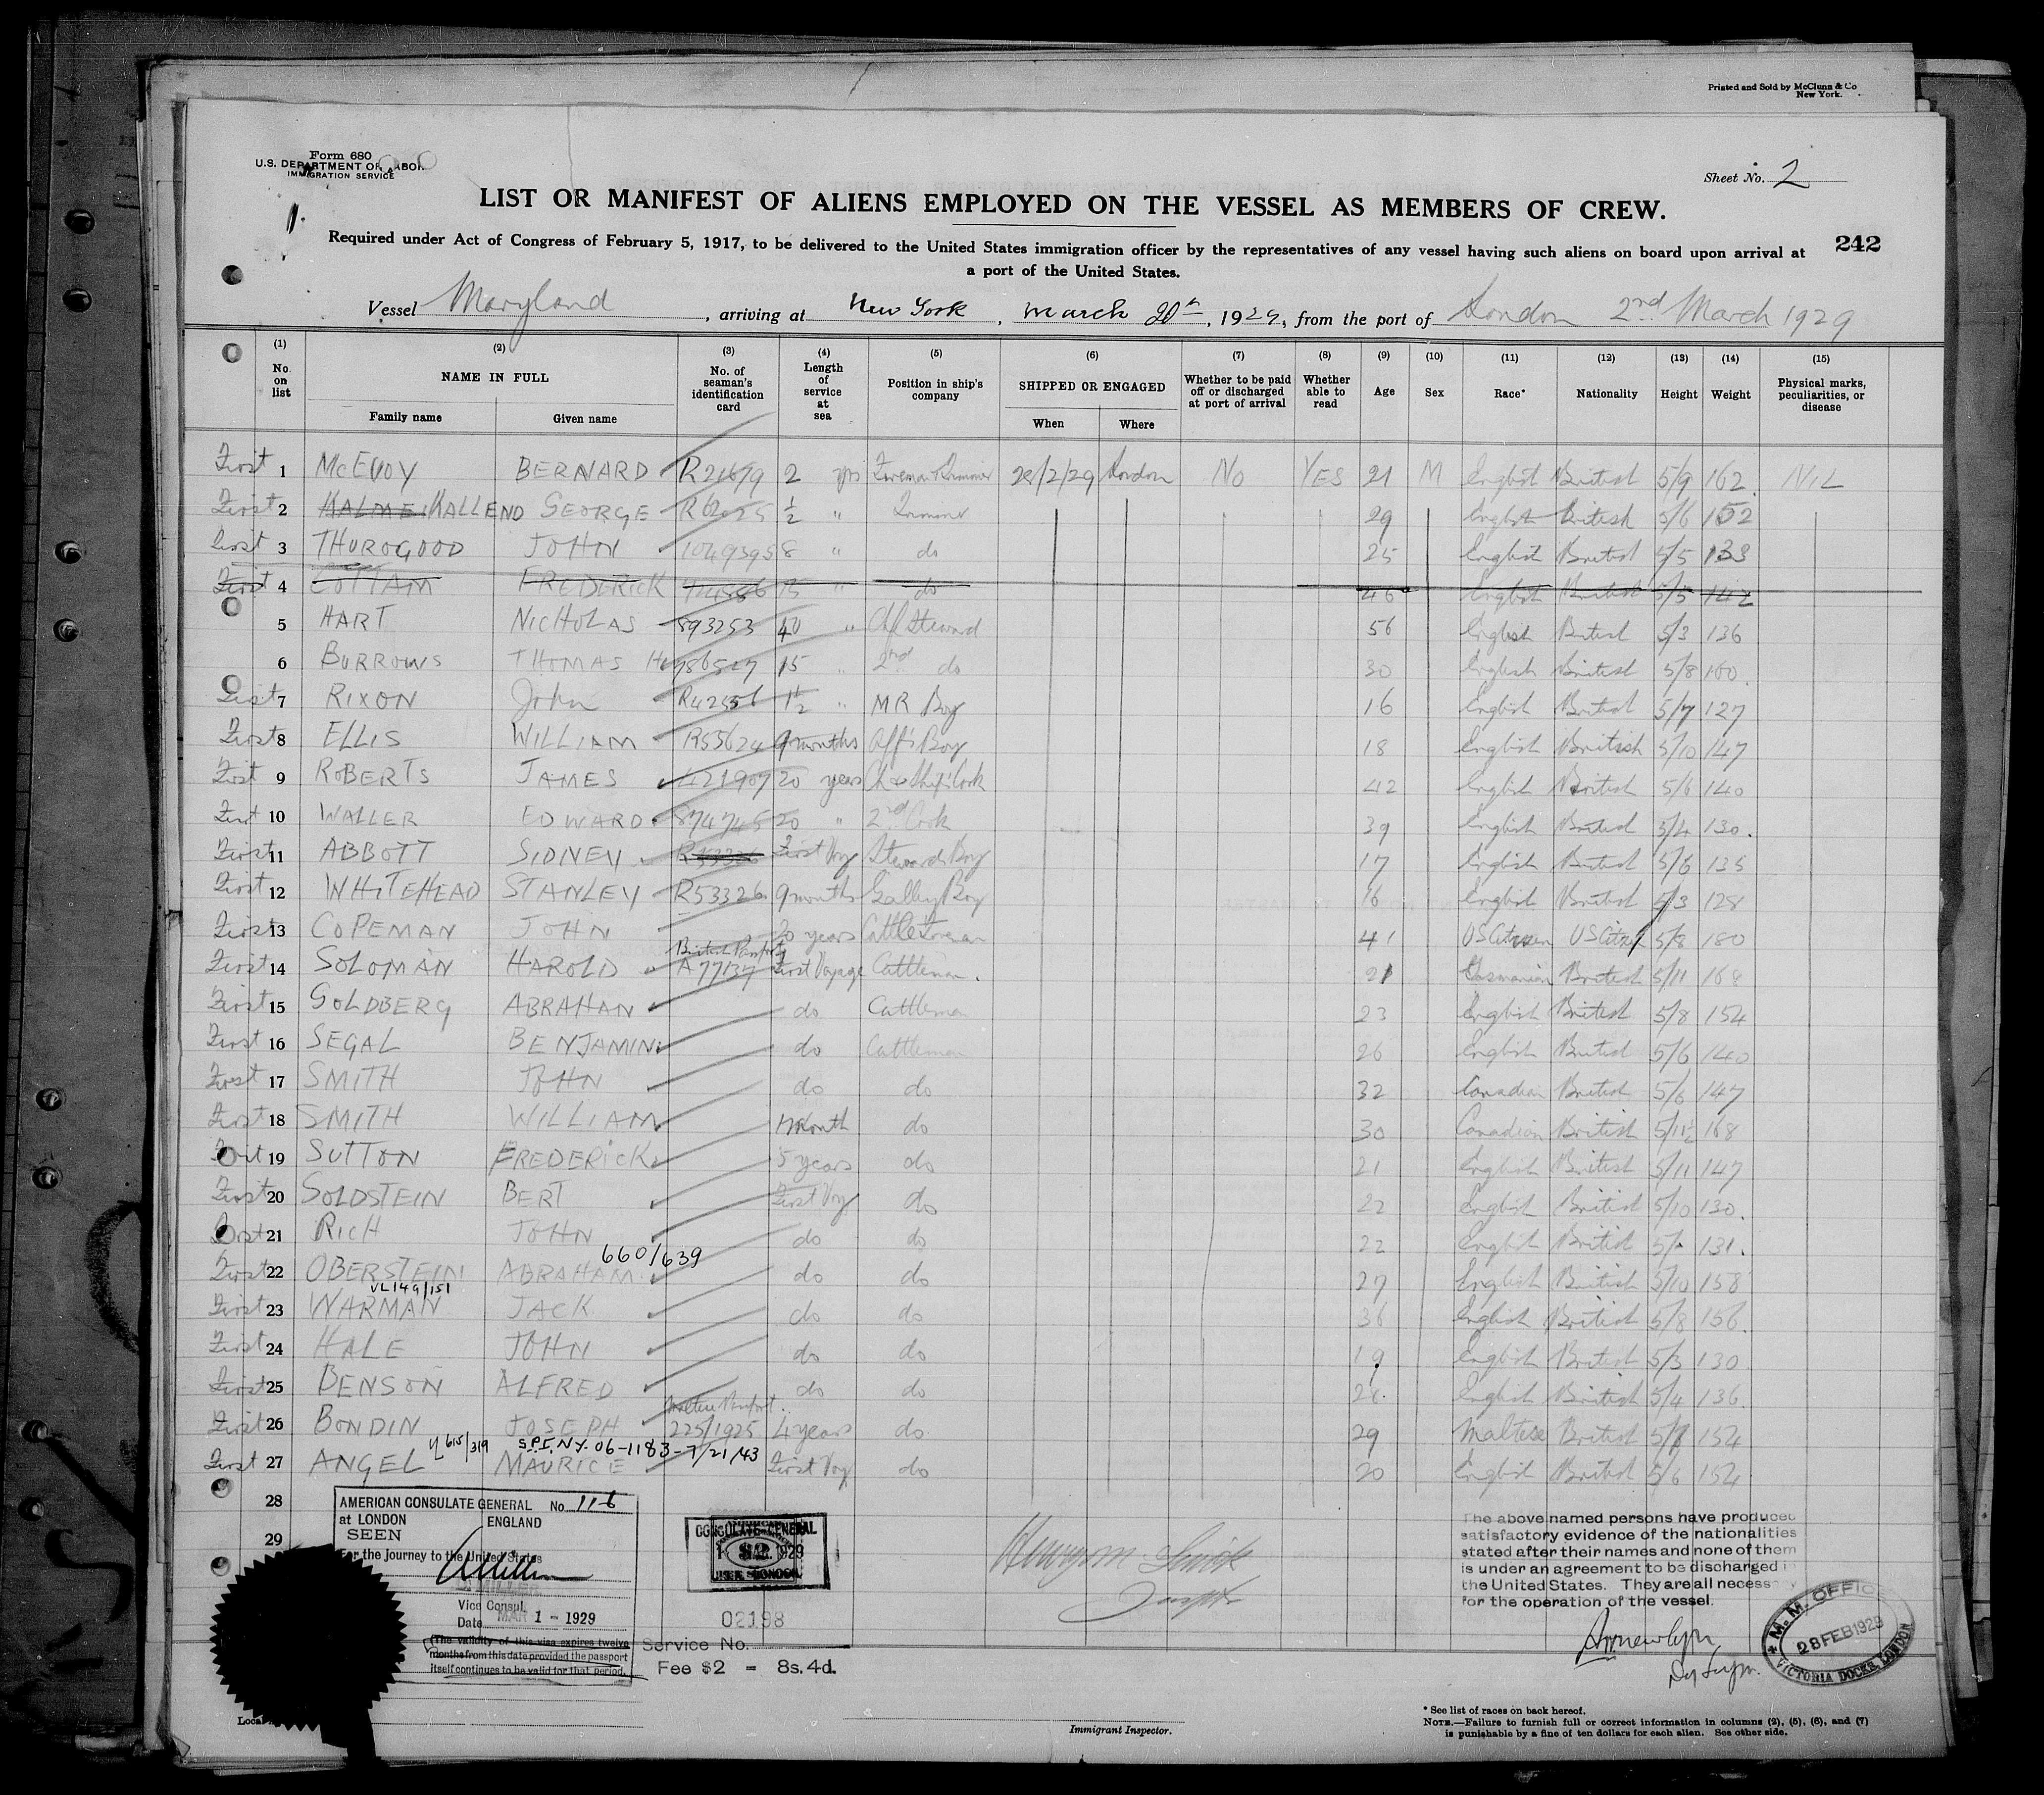 Printed and Sold by McClunn & Co
New York.
Form 680
U.S. DEPARTMENT OF LABOR
IMMIGRATION SERVICE
Sheet No. 2
LIST OR MANIFEST OF ALIENS EMPLOYED ON THE VESSEL AS MEMBERS OF CREW.
Required under Act of Congress of February 5, 1917, to be delivered to the United States immigration officer by the representatives of any vessel having such aliens on board upon arrival at
242
a port of the United States.
Vessel Maryland, arriving at New York, March 20th, 1929, from the port of London 2nd March 1929
(1) (2) (3) (4) (5) (6) (7) (8) (9) (10) (11) (12) (13) (14) (15)
No. on list NAME IN FULL Family name Given name No. of seaman's identification card Length of service at sea Position in ship's company SHIPPED OR ENGAGED When Where Whether to be paid off or discharged at port of arrival Whether able to read Age Sex Race* Nationality Height Weight Physical marks, peculiarities, or disease
First 1 McEVOY BERNARD R21679 2 yrs 28/2/29 London No YES 21 M English British 5/9 162 NIL
First 2 HALLEND GEORGE 1/2 " Trimmer 29 English British 5/6 152
First 3 THUROGOOD JOHN 1049395 8 " do 25 English British 5/5 133
First 4 COTTAM FREDERICK 15 " do 46 English British 5/5 142
5 HART NICHOLAS 893253 40 " Chf Steward 56 English British 5/3 136
6 BURROWS THOMAS H 786527 15 " 2nd do 30 English British 5/8 160
First 7 RIXON John R42556 1 1/2 " MR Boy 16 English British 5/7 127
First 8 ELLIS WILLIAM R55624 9 months Off's Boy 18 English British 5/10 147
First 9 ROBERTS JAMES 421907 20 years Ch & Ship's Cook 42 English British 5/6 140
First 10 WALLER EDWARD 874745 20 " 2nd Cook 39 English British 5/4 130
First 11 ABBOTT SIDNEY First Voy Stewards Boy 17 English British 5/6 135
First 12 WHITEHEAD STANLEY R53326 9 months Galley Boy 16 English British 5/3 128
First 13 COPEMAN JOHN 20 years Cattle Foreman 41 US Citizen US Citizen 5/8 180
First 14 SOLOMAN HAROLD British Passport A77137 First Voyage Cattleman 21 Tasmanian British 5/11 168
First 15 GOLDBERG ABRAHAN do Cattleman 23 English British 5/8 154
First 16 SEGAL BENJAMIN do Cattleman 26 English British 5/6 140
First 17 SMITH JOHN do do 32 Canadian British 5/6 147
First 18 SMITH WILLIAM 1 Month do 30 Canadian British 5/11½ 168
First 19 SUTTON FREDERICK 5 years do 21 English British 5/11 147
First 20 GOLDSTEIN BERT First Voy do 22 English British 5/10 130
First 21 RICH JOHN do do 22 English British 131
660/639
First 22 OBERSTEIN ABRAHAM do do 27 English British 5/10 158
VL149/151
First 23 WARMAN JACK do do 36 English British 5/8 156
First 24 HALE JOHN do do 19 English British 5/3 130
First 25 BENSON ALFRED do do English British 5/4 136
First 26 BONDIN JOSEPH Maltese Passport 225/1925 4 years do 29 Maltese British 154
615/319 S.P.I. N.Y. 06-1183-7/21/43
First 27 ANGEL MAURICE First Voy do 20 English British 5/6 154
28
29
AMERICAN CONSULATE GENERAL No. 116
at LONDON ENGLAND
SEEN
For the Journey to the United States
MILLER
Vice Consul.
Date MAR 1 - 1929
The validity of this visa expires twelve
months from this date provided the passport
itself continues to be valid for that period.
CONSULATE-GENERAL
$2
1929
02198
Service No.
Fee $2 = 8s. 4d.
The above named persons have produced
satisfactory evidence of the nationalities
stated after their names and none of them
is under an agreement to be discharged in
the United States. They are all necessary
for the operation of the vessel.
M. M. OFFICE
28 FEB 1929
VICTORIA DOCKS, LONDON
Local
Immigrant Inspector.
* See list of races on back hereof.
NOTE.—Failure to furnish full or correct information in columns (2), (5), (6), and (7)
is punishable by a fine of ten dollars for each alien. See other side.